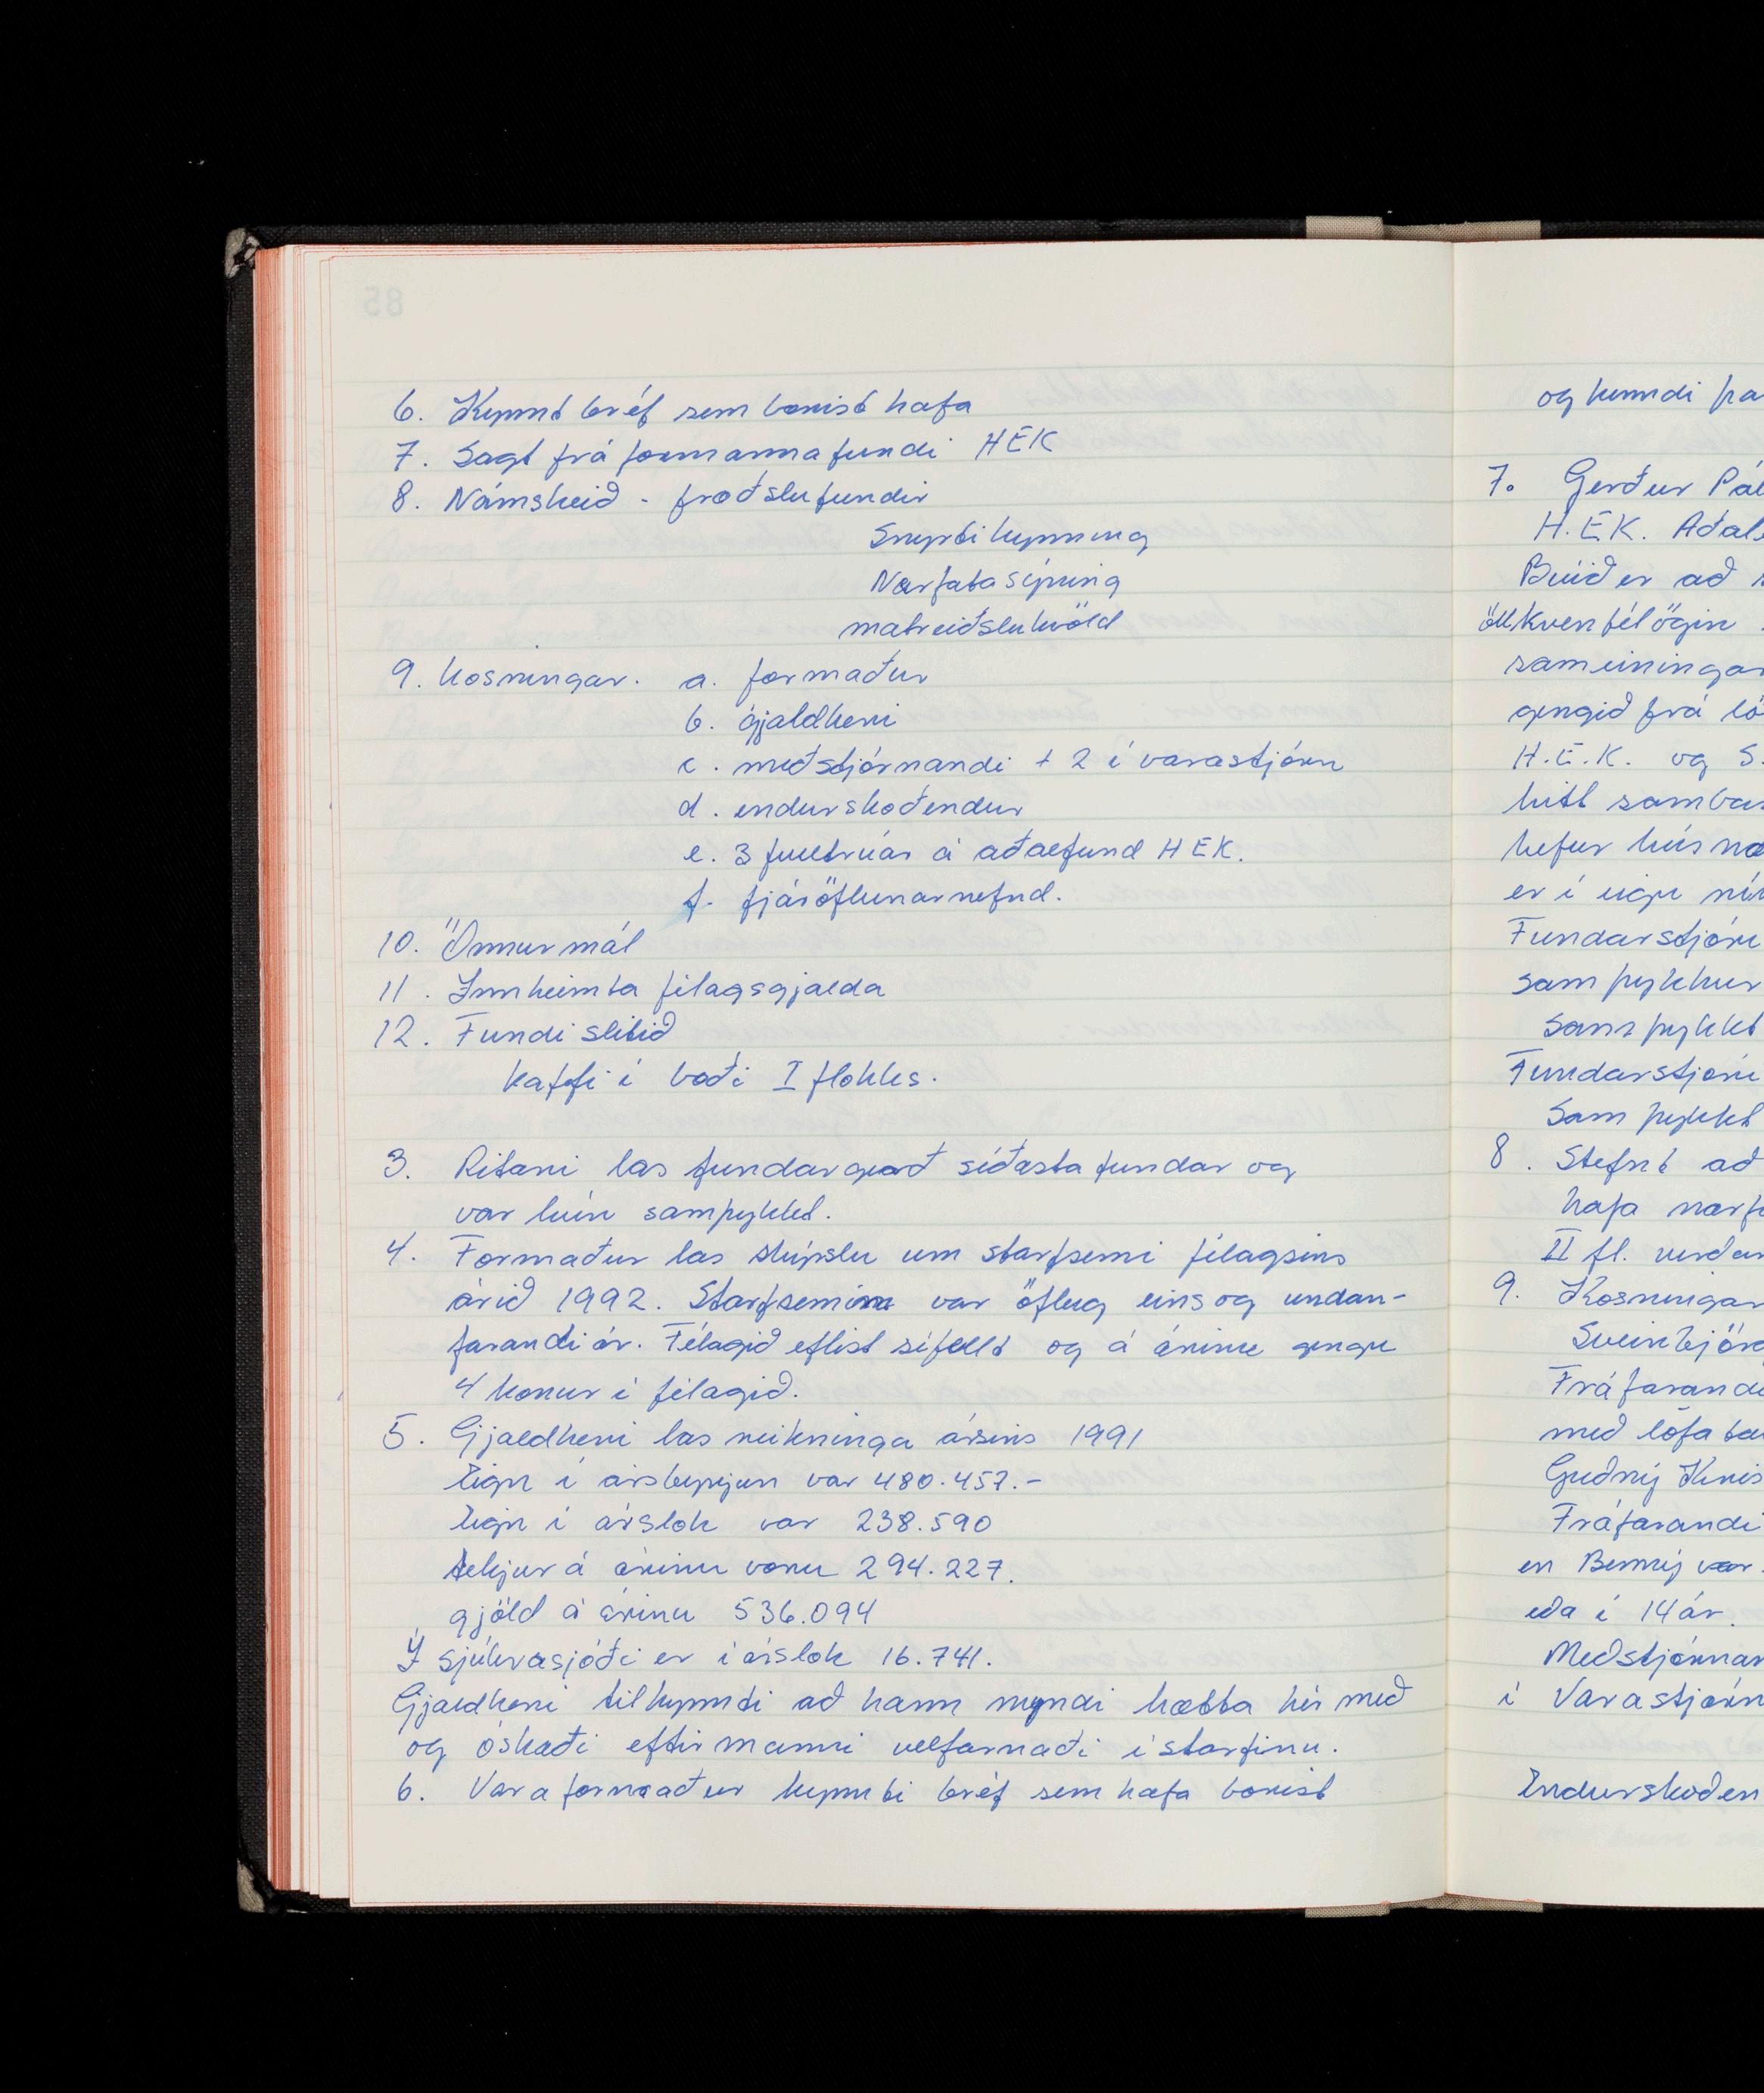 6. Kynnt bréf sem borist hafa
7. Sagt frá formannafundi HEK
8. Námskeið - fræðslufundir
Snyrtikynning
Nærfatasýning
matreiðslukvöld
9. kosningar. a. formaður
b. gjaldkeri
c. meðstjórnandi + 2 í varastjórn
d. endurskoðendur
e. 3 fulltrúar á aðalfund HEK.
f. fjáröflunarnefnd.
10. Önnur mál
11. Innheimta félagsgjalda
12. Fundi slitið
kaffi í boði I flokks.
3. Ritari las fundargerð síðasta fundar og
var hún samþykkt.
4. Formaður las skýrslu um starfsemi félagsins
árið 1992. Starfsemin var öflug eins og undan-
farandi ár. Félagið eflist sífellt og á árinu gengu
4 konur í félagið.
5. Gjaldkeri las reikninga ársins 1991
Eign í ársbyrjun var 480.457.-
Eign í árslok var 238.590
tekjur á árinu voru 294.227.
gjöld á árinu 536.094
Í sjúkrasjóði er í árslok 16.741.
Gjaldkeri tilkynnti að hann myndi hætta hér með
og óskaði eftirmanni velfarnaði í starfinu.
6. Varaformaður kynnti bréf sem hafa borist
og kynndi þa
7. Gerður Pál
H.EK. Aðal
Búið er að
öll kvenfélögin
sameiningar
gengið frá lö
H.E.K. og S.
hitt samban
hefur húsnæ
er í eigu
Fundarstjóri
samþykkur
Samþykkt
Fundarstjóri
Samþykkt
8. Stefnt að
hafa nærf
II fl. verður
9. Kosningar
Sveinbjör
Fráfarandi
með lófata
Guðný Kris
Fráfarandi
en Benný var
eða í 14 ár.
Meðstjórnan
í Varastjórn
Endurskoðen